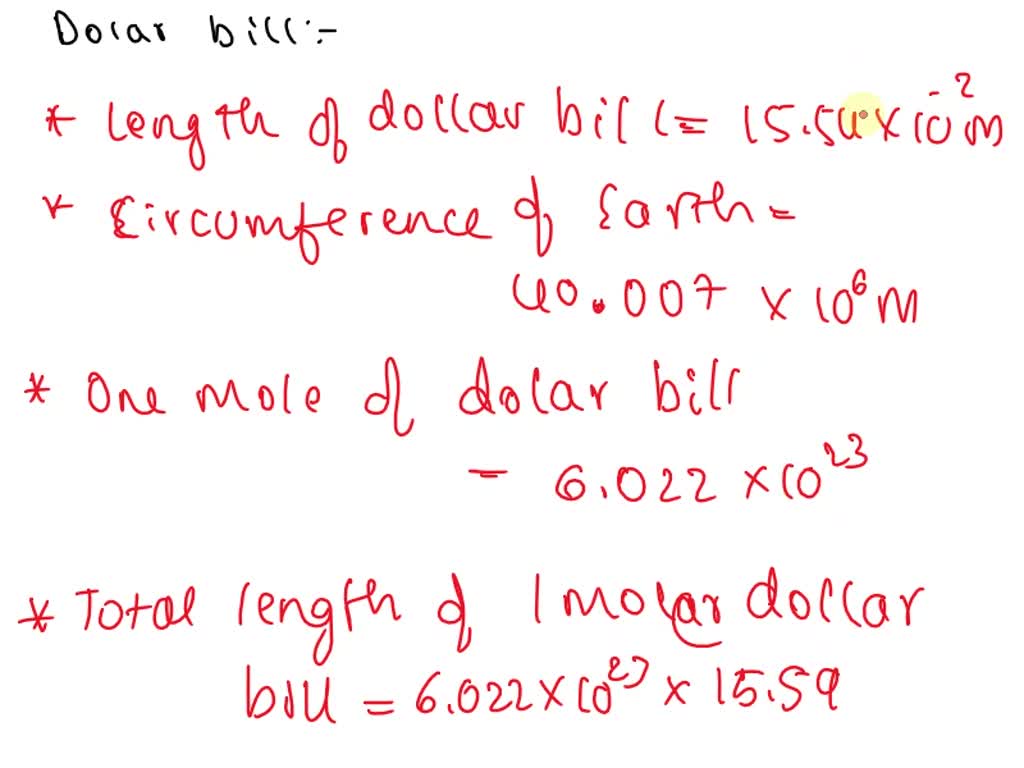 Dolar bill:-
* Length of dollar bill = 15.54 × 10⁻² m
* Circumference of Earth =
40.007 × 10⁶ m
* One mole of dolar bill
= 6.022 × 10²³
* Total length of 1 molar dollar
bill = 6.022 × 10²³ × 15.59